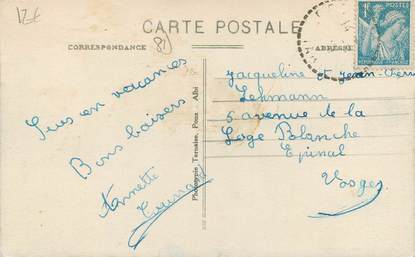 12€
CARTE POSTALE
CORRESPONDANCE
ADRESSE
RÉPUBLIQUE FRANÇAISE
Suis en vacances
Bons baisers
Annette
Photographie Ternaise, Poux - Albi
Jacqueline et Jean-Pierre
Lehmann
5 avenue de la
Loge Blanche
Epinal
Vosges